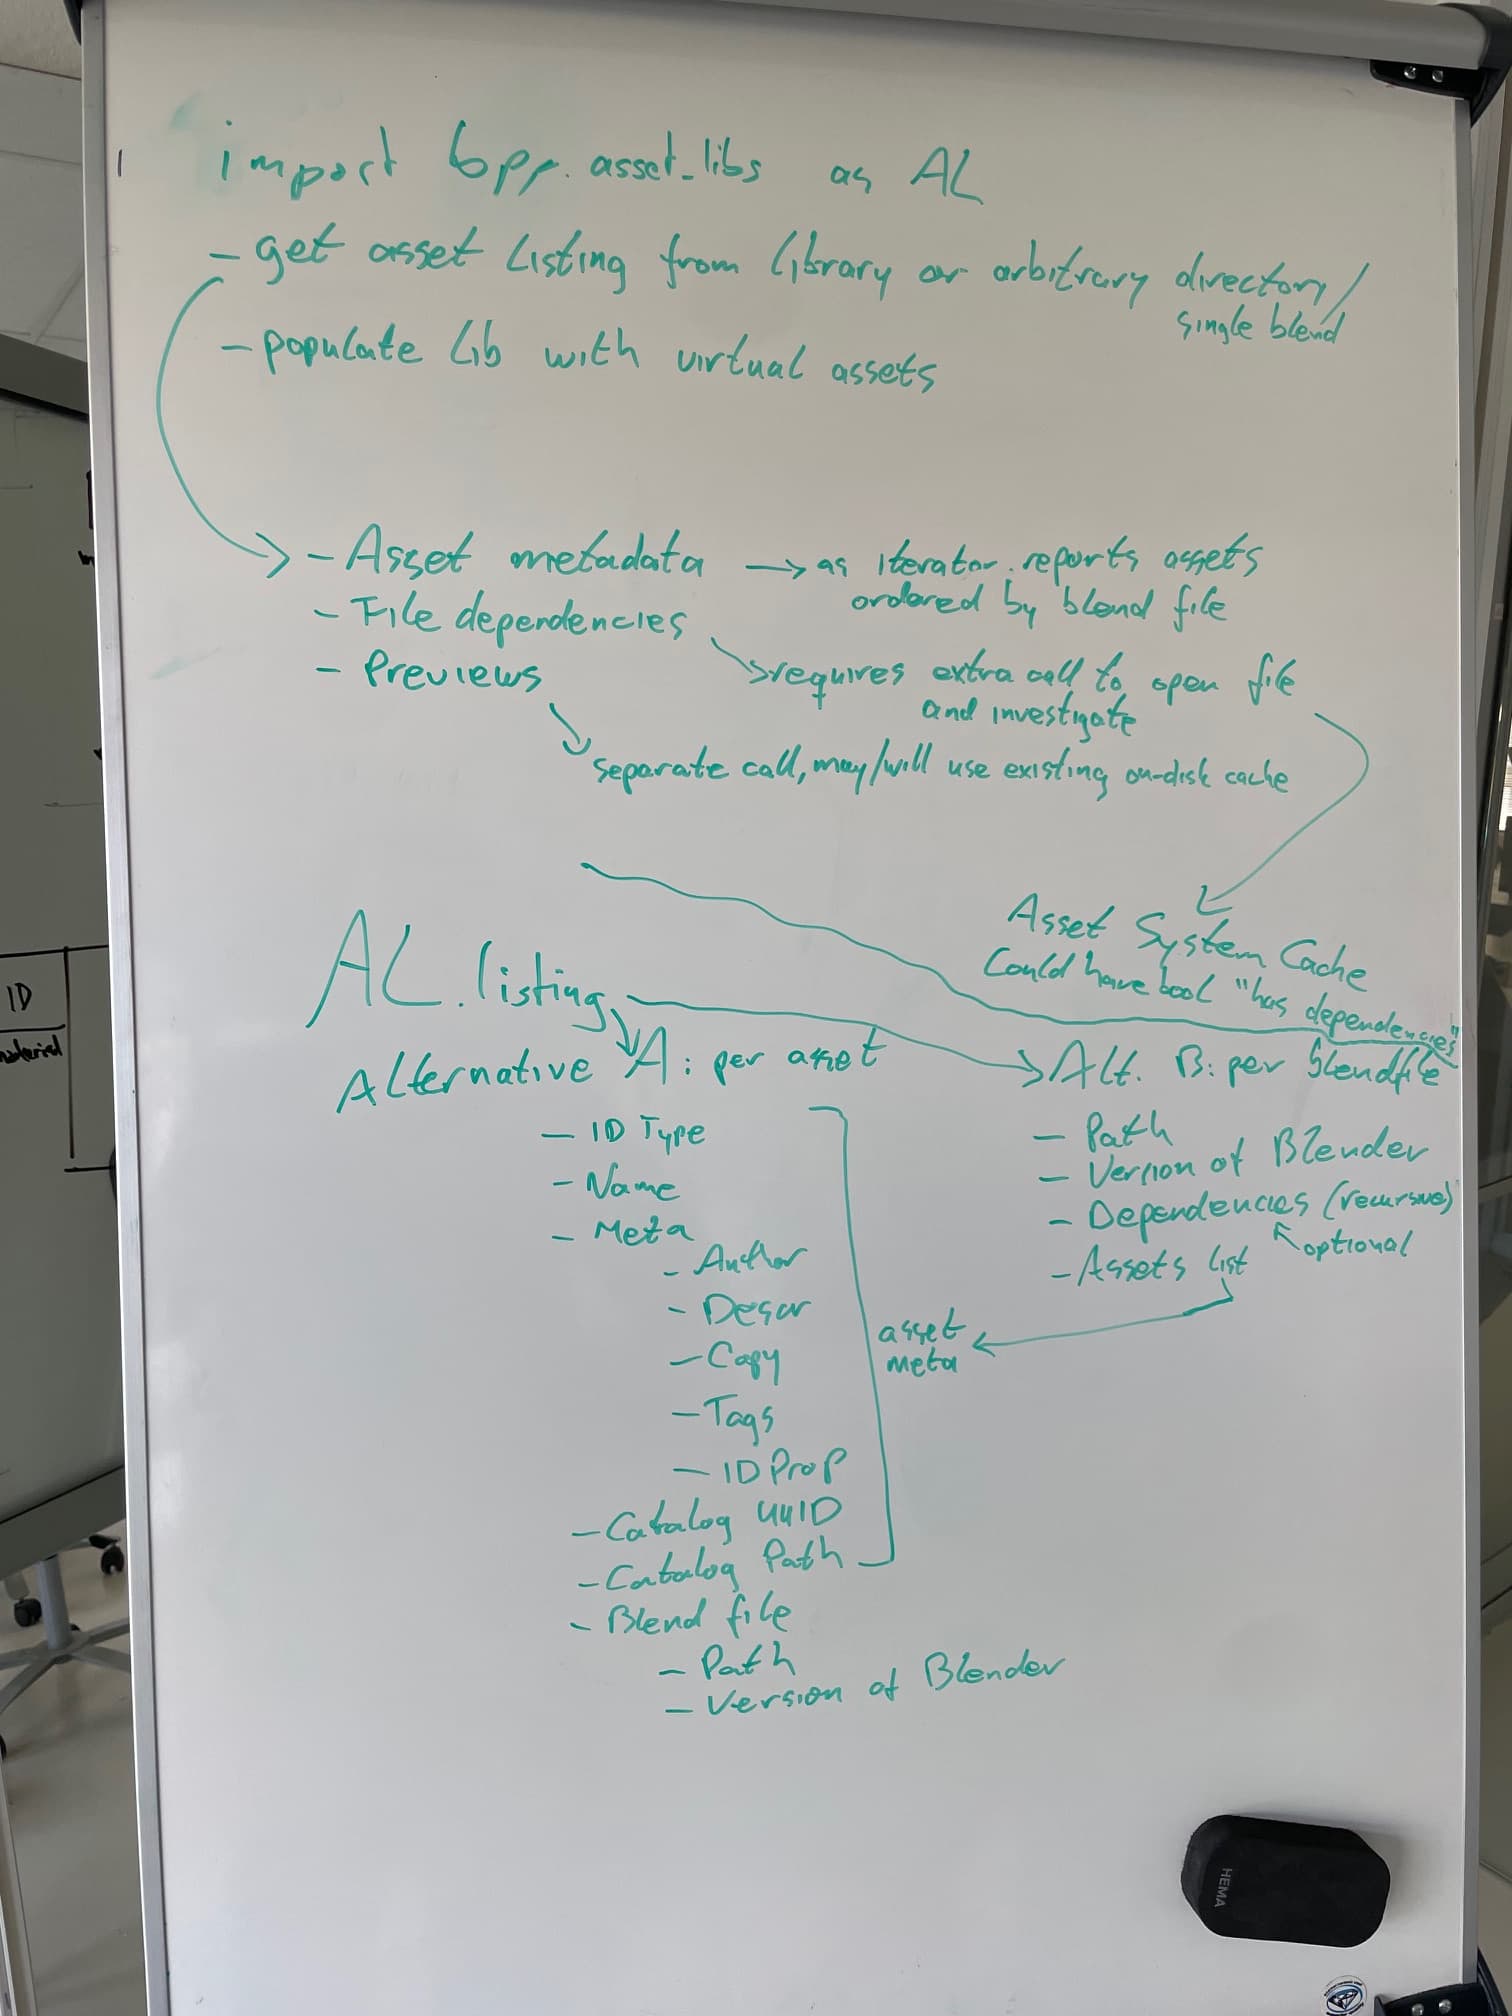 import bpy.asset_libs as AL
- get asset listing from library or arbitrary directory/
single blend
- populate lib with virtual assets
- Asset metadata → as iterator. reports assets
ordered by blend file
- File dependencies
requires extra call to open file
and investigate
- Previews
separate call, may/will use existing on-disk cache
Asset System Cache
Could have bool "has dependencies"
AL.listing
Alternative A: per asset
- ID Type
- Name
- Meta
- Author
- Descr
- Copy
- Tags
- IDProp
- Catalog UUID
- Catalog Path
- Blend file
- Path
- Version of Blender
asset
meta
Alt. B: per blendfile
- Path
- Version of Blender
- Dependencies (recursive)
optional
- Assets list
ID
material
HEMA